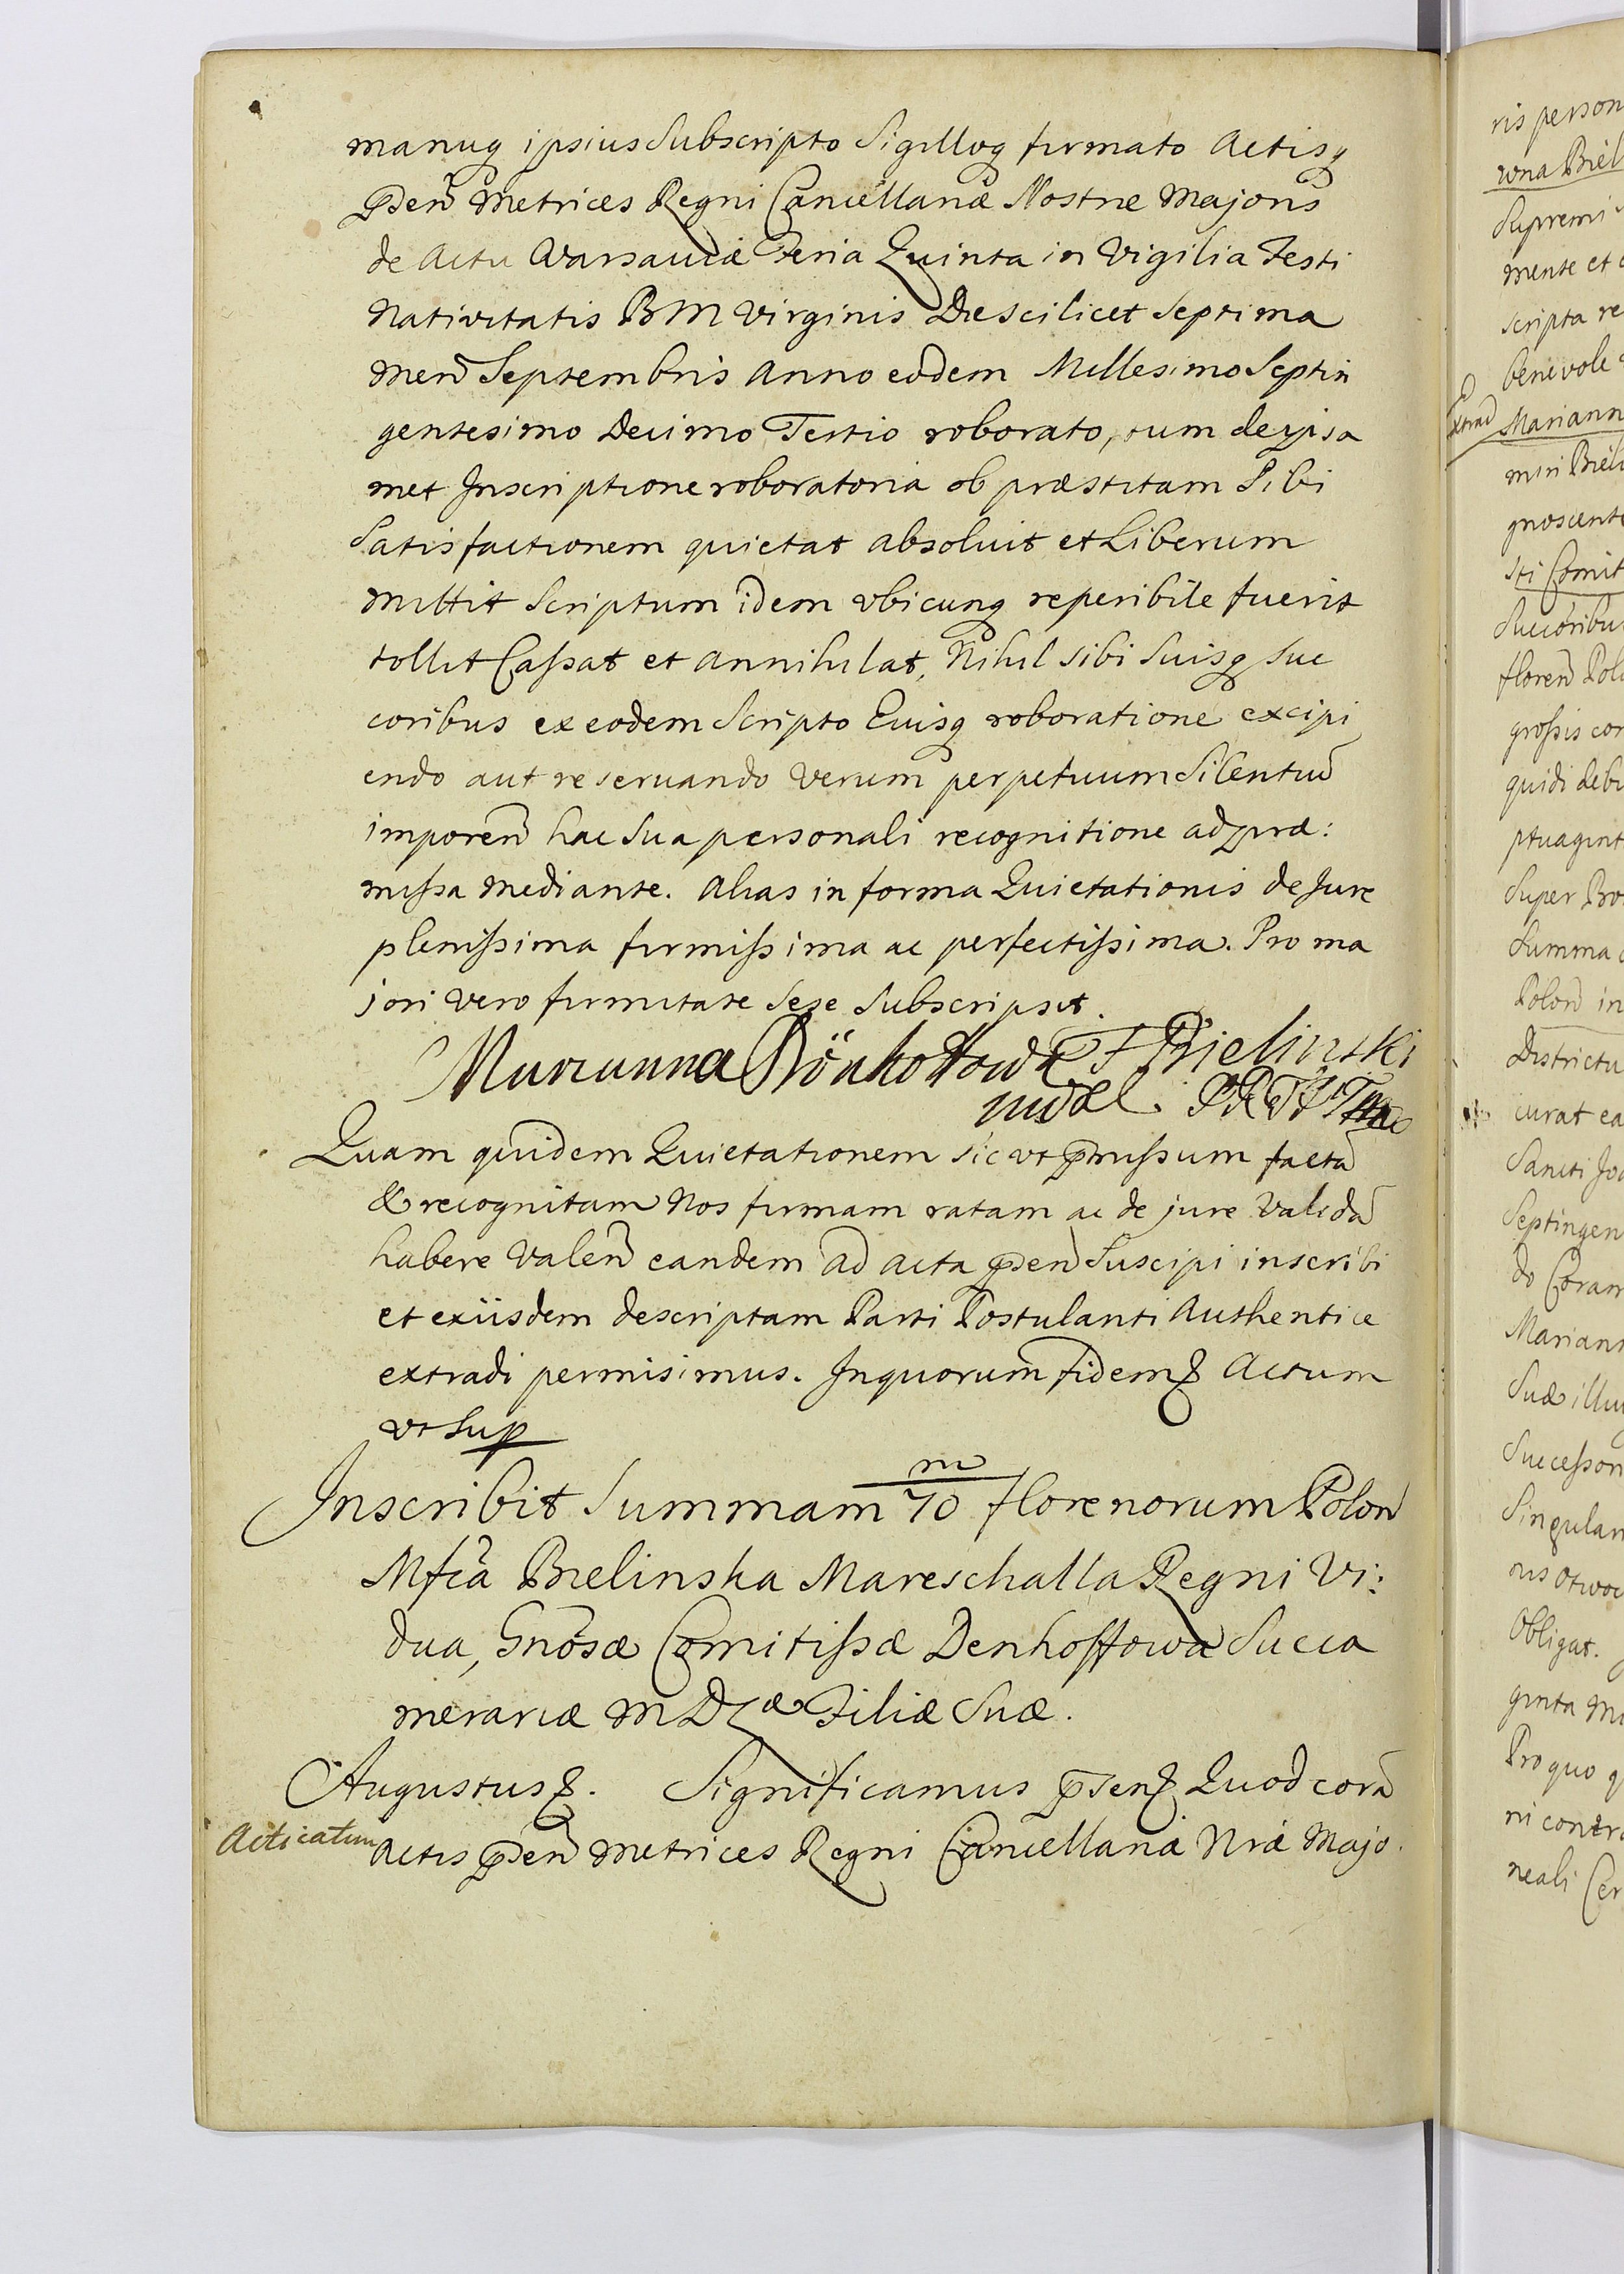 manuq ipsius Subscripto Sigilloq firmato Actisq
pñden Metrices Regni Cancellariæ Nostræ Majoris
de Actu Varsaviæ Feria Quinta in Vigilia Festi
Nativitatis BM Virginis Die scilicet Septima
Men Septembris Anno eodem Millesimo Septin
gentesimo Decimo Tertio roborato, tum de ipsa
met Inscriptione roboratoria ob præstitam Sibi
Satisfactionem quietat absolvit et Liberum
mittit Scriptum idem vbicunq reperibile fuerit
tollit Cassat et annihilat, Nihil sibi Suisq Suc
coribus ex eodem Scripto Euisq roboratione excipi
endo aut reservando Verum perpetuum Silentiũ
imponeñ hac Sua personali recognitione ad præ:
missa mediante. Alias in forma Quietationis de Jure
plenissima firmissima ac perfectissima. Pro ma
jori vero firmitate Sese Subscripsit.
Marianna Dönhoffowa F Bielinski
Quam quidem Quietationem sic vt pmissum factã
& recognitam Nos firmam ratam ac de jure Validã
habere Valeñ eandem ad acta pñden Suscipi inscribi
et exiisdem descriptam Parti Postulanti Authentice
extradi permisimus. Inquorum fidem & Actum
vt Sup
Inscribit Summam m/70 florenorum Polon
Mfcã Bielinska Mareschalla Regni Vi:
dua, Gnõsæ Comitissæ Denhoffowa Succa
merariæ M D Læ Filiæ Suæ.
Augustus &. Significamus pñsen & Quod corã
Acticatum
Actis pñden Metrices Regni Cancellariæ Nræ Majo.
ris person
wna Biel
Supremi
mente et
scripta re
benevole
extrad
Mariann
miri Bieli
gnoscente
sti Comit
Succoribus
floren Pol
grossis con
quidi debi
ptuagint
Super Bo
Summa
Polon in
Districtu
curat ea
Sancti Jo
Septingen
do Coram
Mariann
Suæ illu
Successor
Singular
Obligat.
ginta M
Pro quo q
ni contra
neali Cer